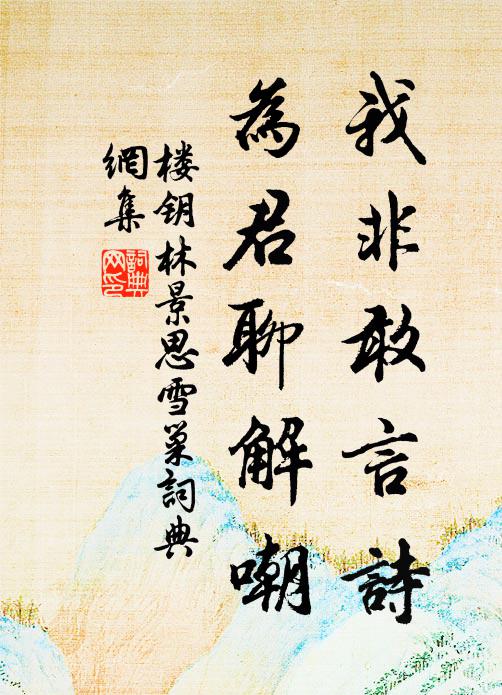 我非敢言詩
為君聊解嘲
楼钥林景思雪巢詞典
網集
詞典
网印